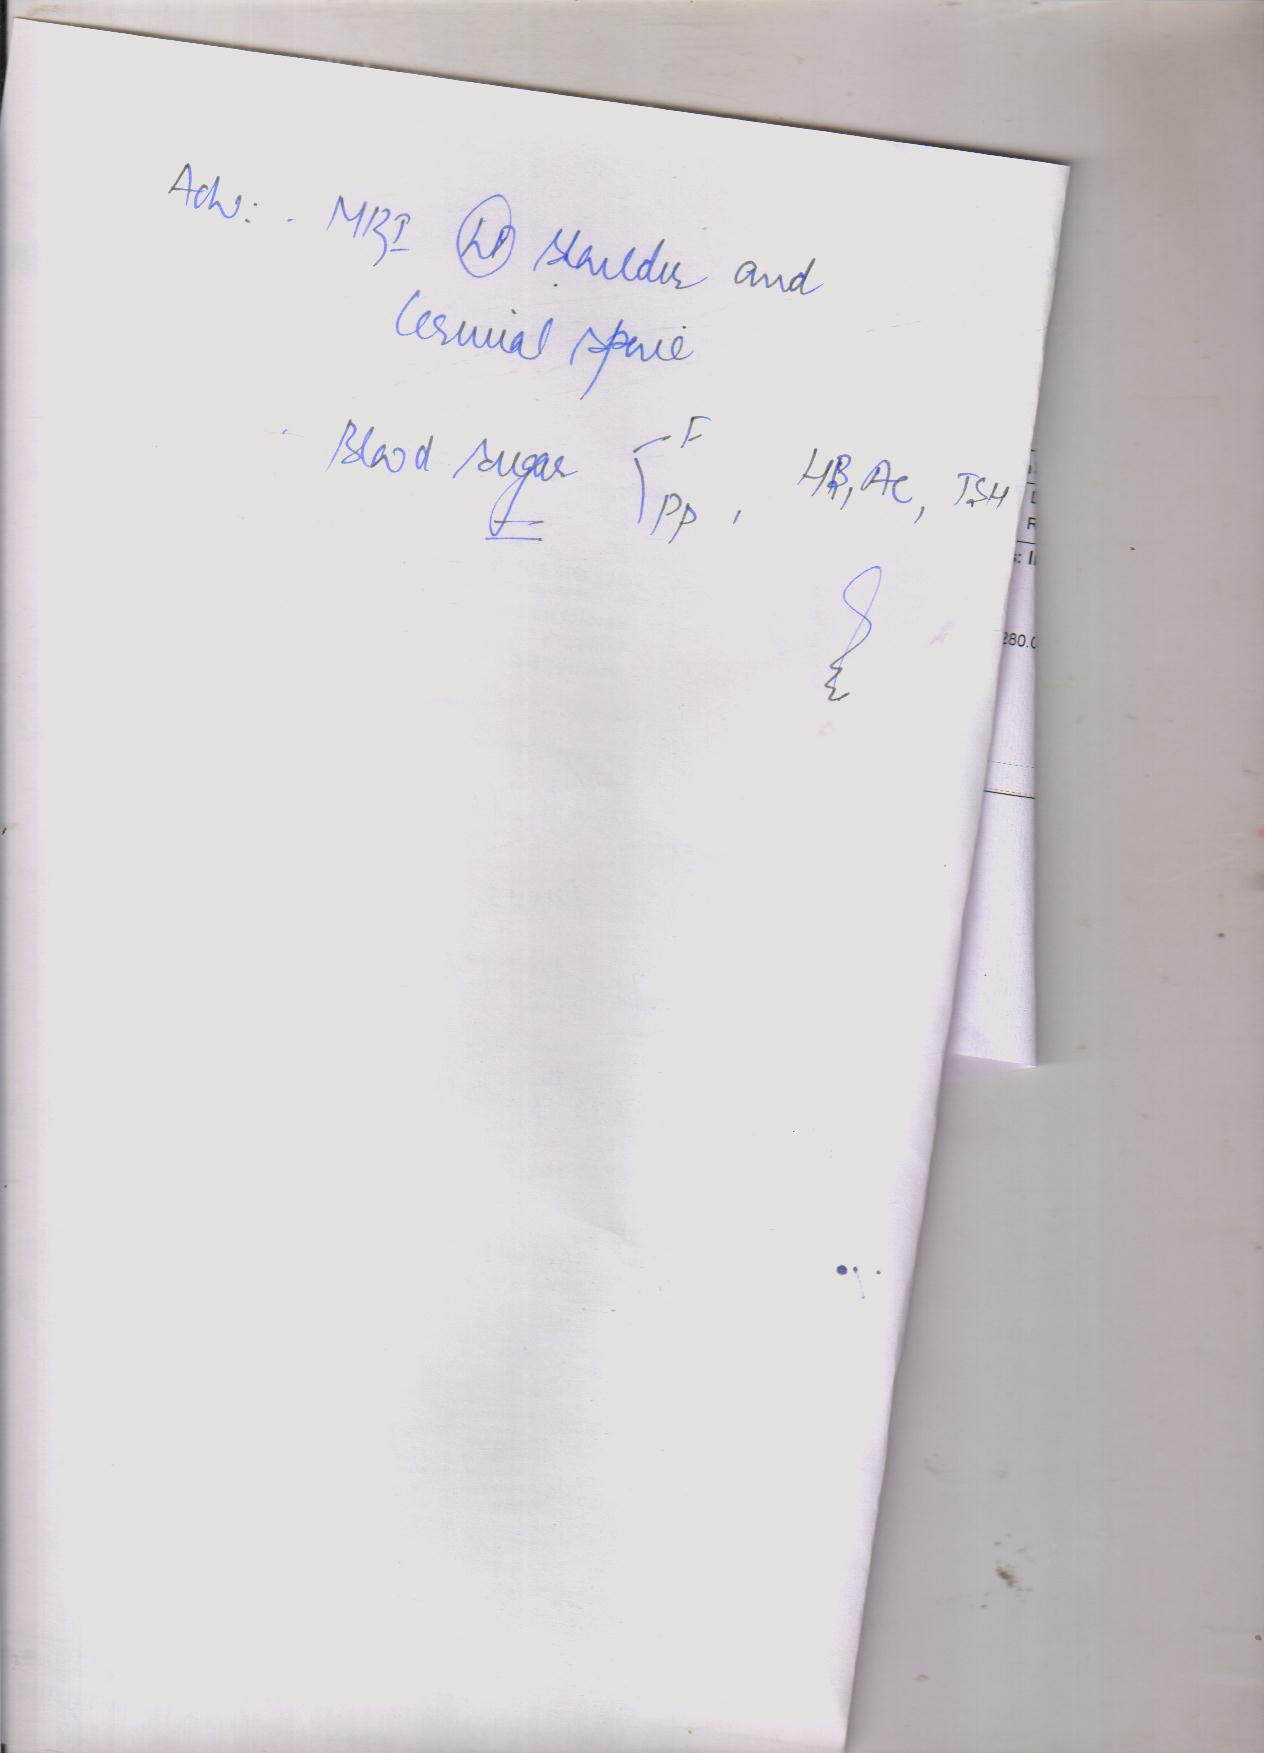 Adv: · MRI Lt Shoulder and
Cervical spine
· Blood Sugar F
PP, HB, AC, TSH
280.0